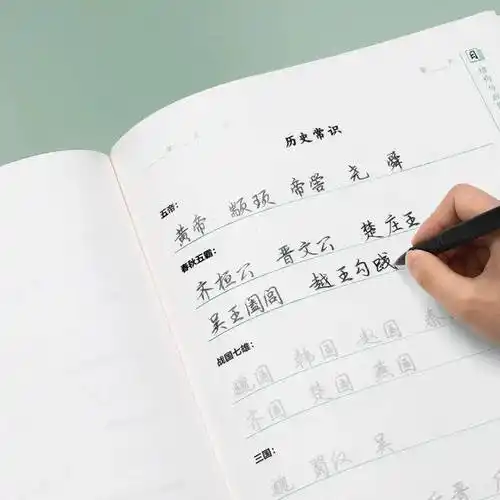 历史常识
五帝：
黄帝 颛顼 帝喾 尧 舜
春秋五霸：
齐桓公 晋文公 楚庄王
吴王阖闾 越王勾践
战国七雄：
魏国 韩国 赵国 秦
齐国 楚国 燕国
三国：
魏 蜀汉 吴